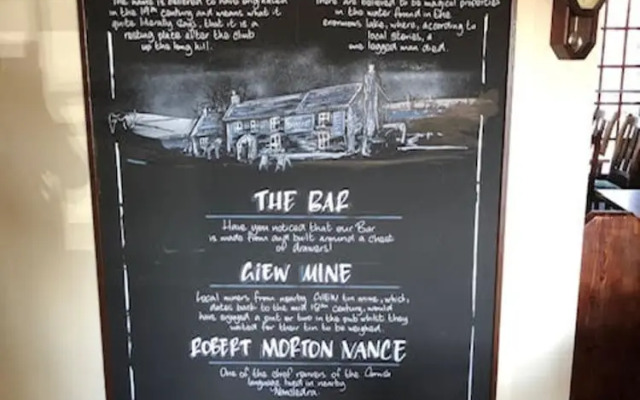 The name is believed to have originated
in the 19th century and means what it
quite literally says, that it is a
resting place after the climb
up the long hill.
There are believed to be magical properties
in the water found in the
enormous lake, where, according to
local stories, a
one legged man died.
THE BAR
Have you noticed that our Bar
is made from and built around a chest
of drawers!
GIEW MINE
Local miners from nearby GIEW tin mine, which,
dates back to the mid 18th century, would
have enjoyed a pint or two in the pub whilst they
waited for their tin to be weighed.
ROBERT MORTON NANCE
One of the chief revivers of the Cornish
language lived in nearby
Nancledra.